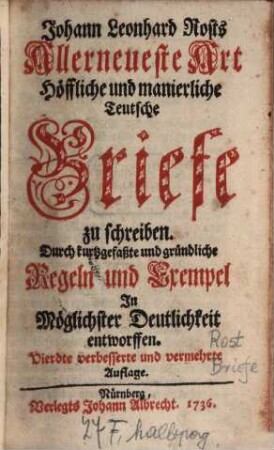 Johann Leonhard Rosts
Allerneueste Art
Höffliche und manierliche
Teutsche
Briefe
zu schreiben.
Durch kurtzgefaßte und gründliche
Regeln und Exempel
In
Möglichster Deutlichkeit
entworffen.
Vierdte verbesserte und vermehrte
Auflage.
Rost
Briefe
Nürnberg,
Verlegts Johann Albrecht. 1736.